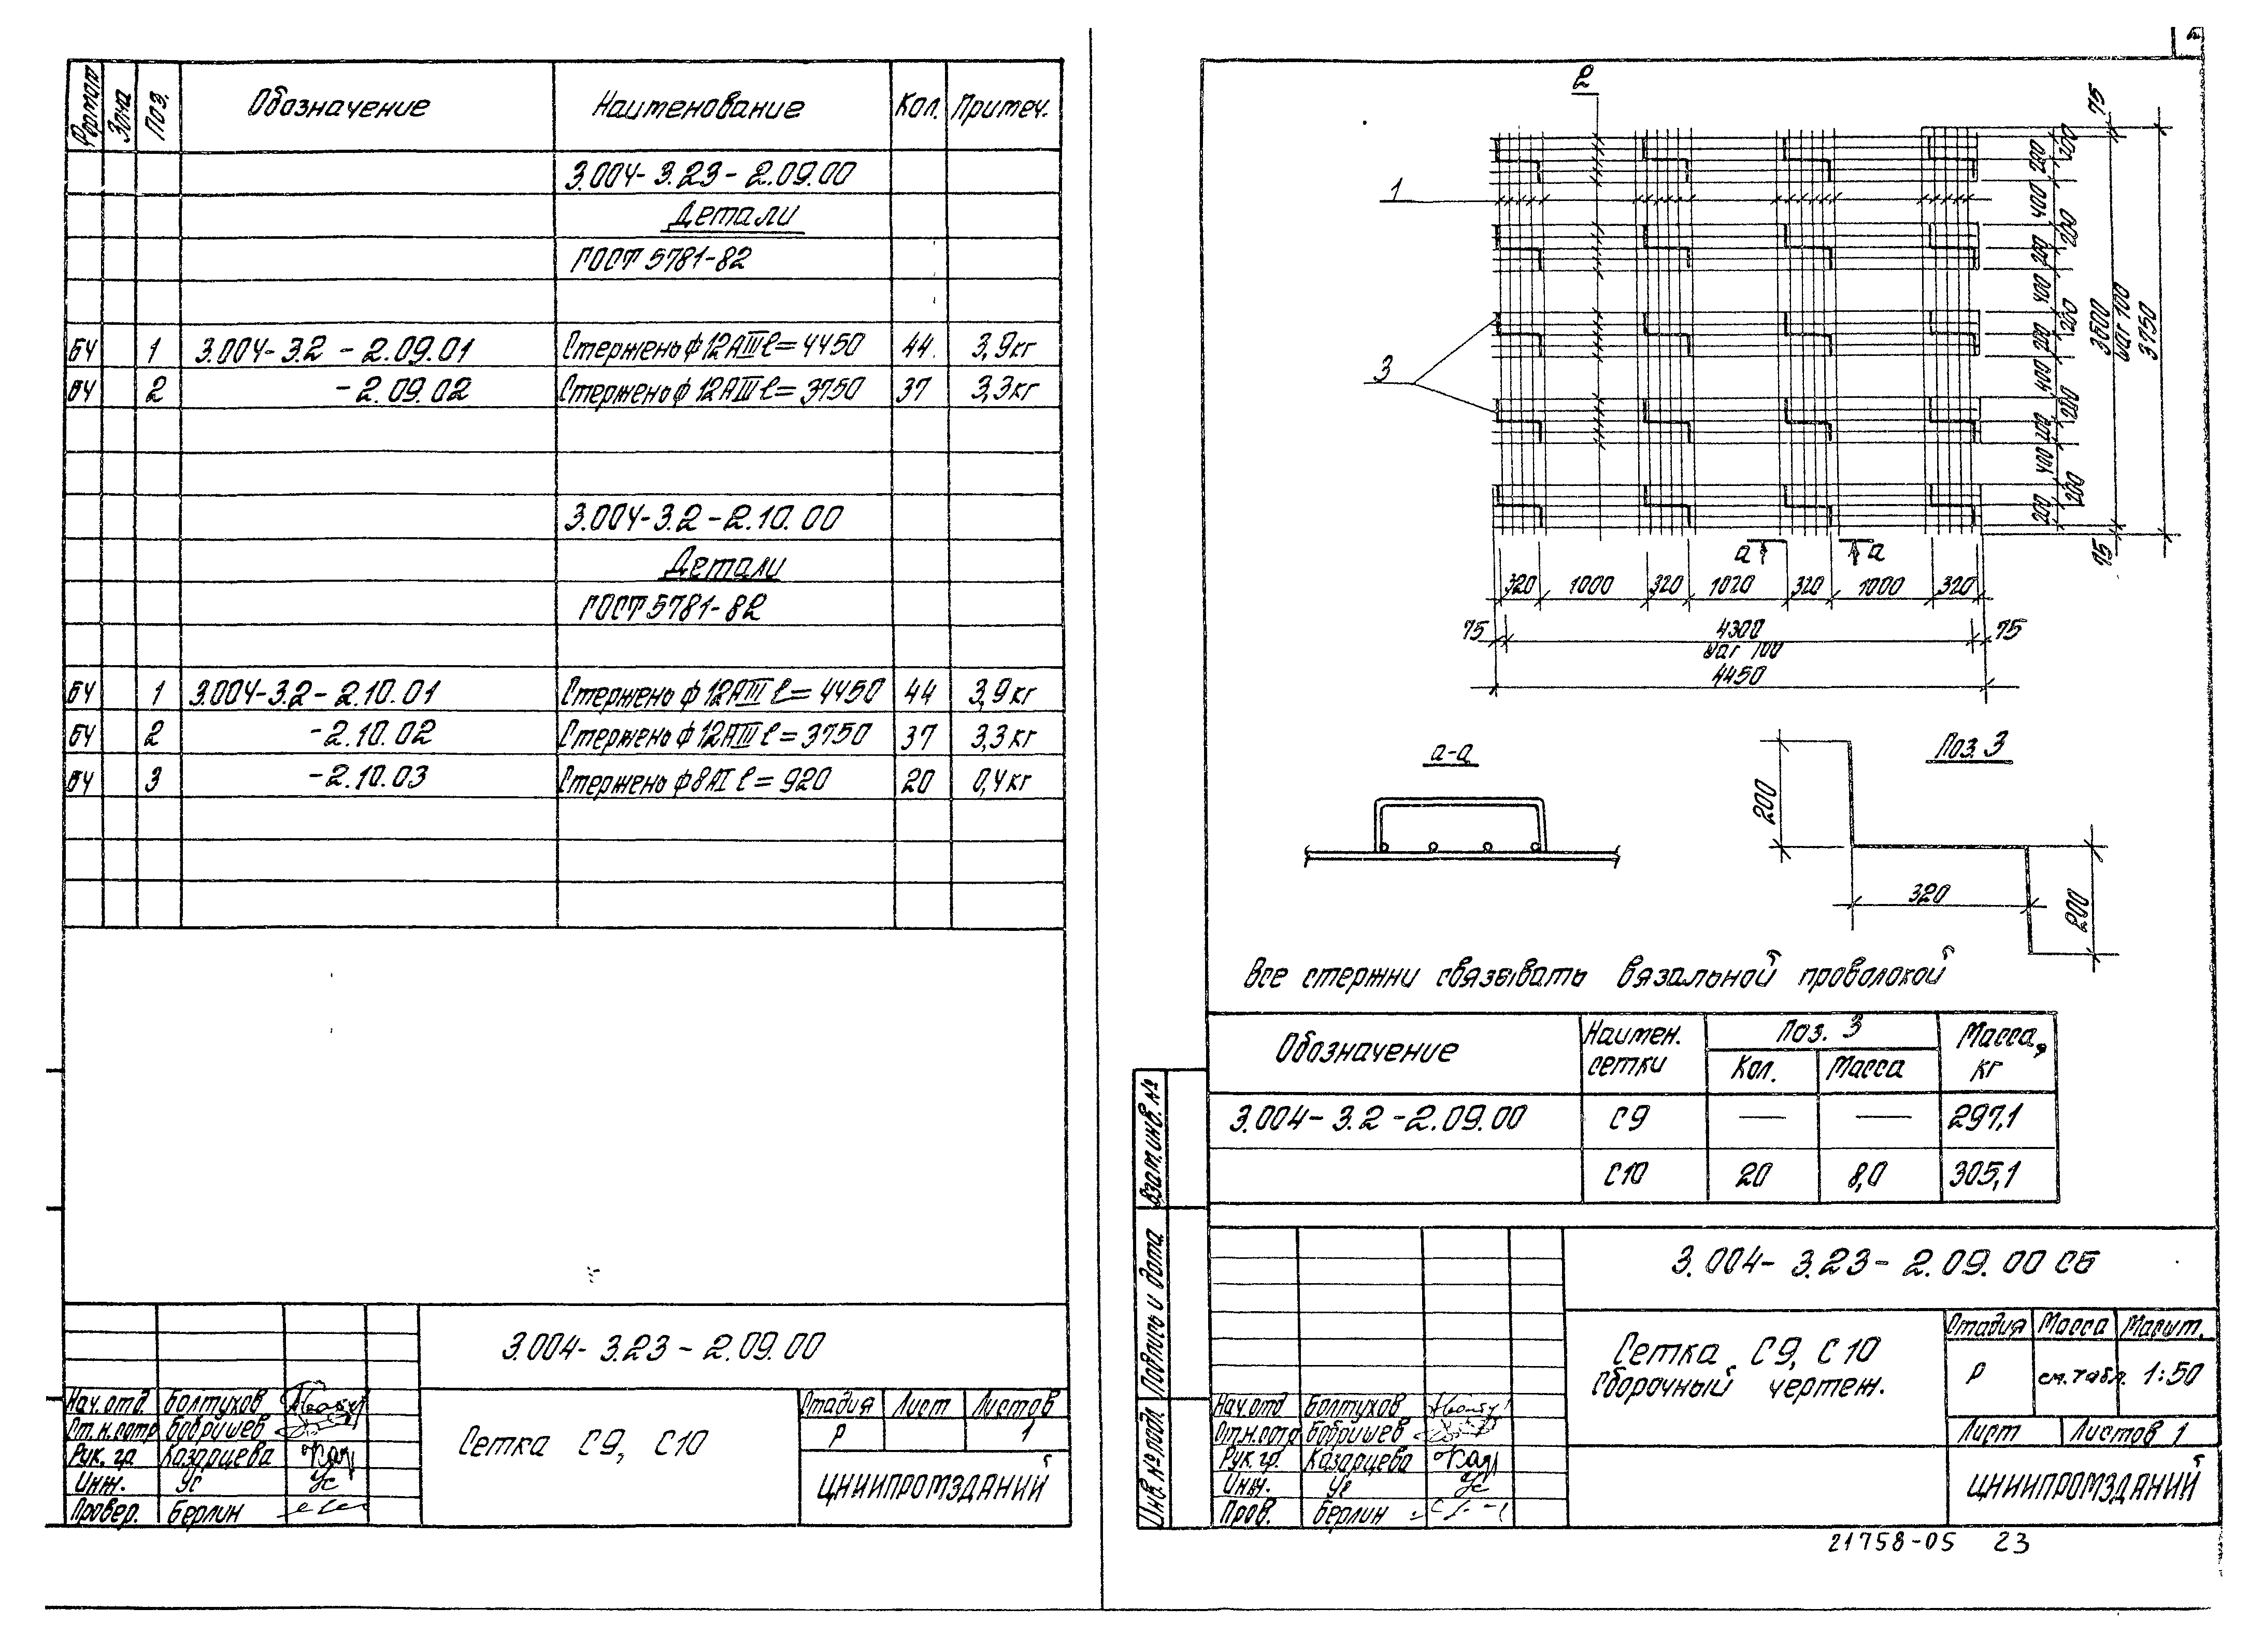 Формат Зона Поз. Обозначение Наименование Кол. Примеч.
3.004-3.23-2.09.00
Детали
ГОСТ 5781-82
БЧ 1 3.004-3.2-2.09.01 Стержень ф12АIII ℓ=4450 44 3,9кг
БЧ 2 -2.09.02 Стержень ф12АIII ℓ=3750 37 3,3кг
3.004-3.2-2.10.00
Детали
ГОСТ 5781-82
БЧ 1 3.004-3.2-2.10.01 Стержень ф12АIII ℓ=4450 44 3,9кг
БЧ 2 -2.10.02 Стержень ф12АIII ℓ=3750 37 3,3кг
БЧ 3 -2.10.03 Стержень ф8АI ℓ=920 20 0,4кг
3.004-3.23-2.09.00
Нач.отд. Болтухов
Ст.н.сотр Бобришев
Рук.гр. Казарцева
Инж. Ус
Провер. Берлин
Сетка С9, С10
Стадия Лист Листов
Р 1
ЦНИИПРОМЗДАНИЙ
2
1
3
75
200 200
400
200 200
400
200 200
400
200 200
400
200 200
75
3600
шаг 100
3750
а а
320 1000 320 1020 320 1000 320
75 4300 75
шаг 100
4450
а-а
Поз. 3
200
320
200
Все стержни связывать вязальной проволокой
Обозначение Наимен. сетки Поз. 3 Масса, кг
Кол. Масса
3.004-3.2-2.09.00 С9 — — 297,1
С10 20 8,0 305,1
Взам.инв.№
Подпись и дата
Инв.№ подл
3.004-3.23-2.09.00 СБ
Сетка С9, С10
Сборочный чертеж.
Стадия Масса Масшт.
Р см.табл. 1:50
Лист Листов 1
Нач.отд Болтухов
Ст.н.сотр Бобришев
Рук.гр. Казарцева
Инж. Ус
Пров. Берлин
ЦНИИПРОМЗДАНИЙ
21758-05 23